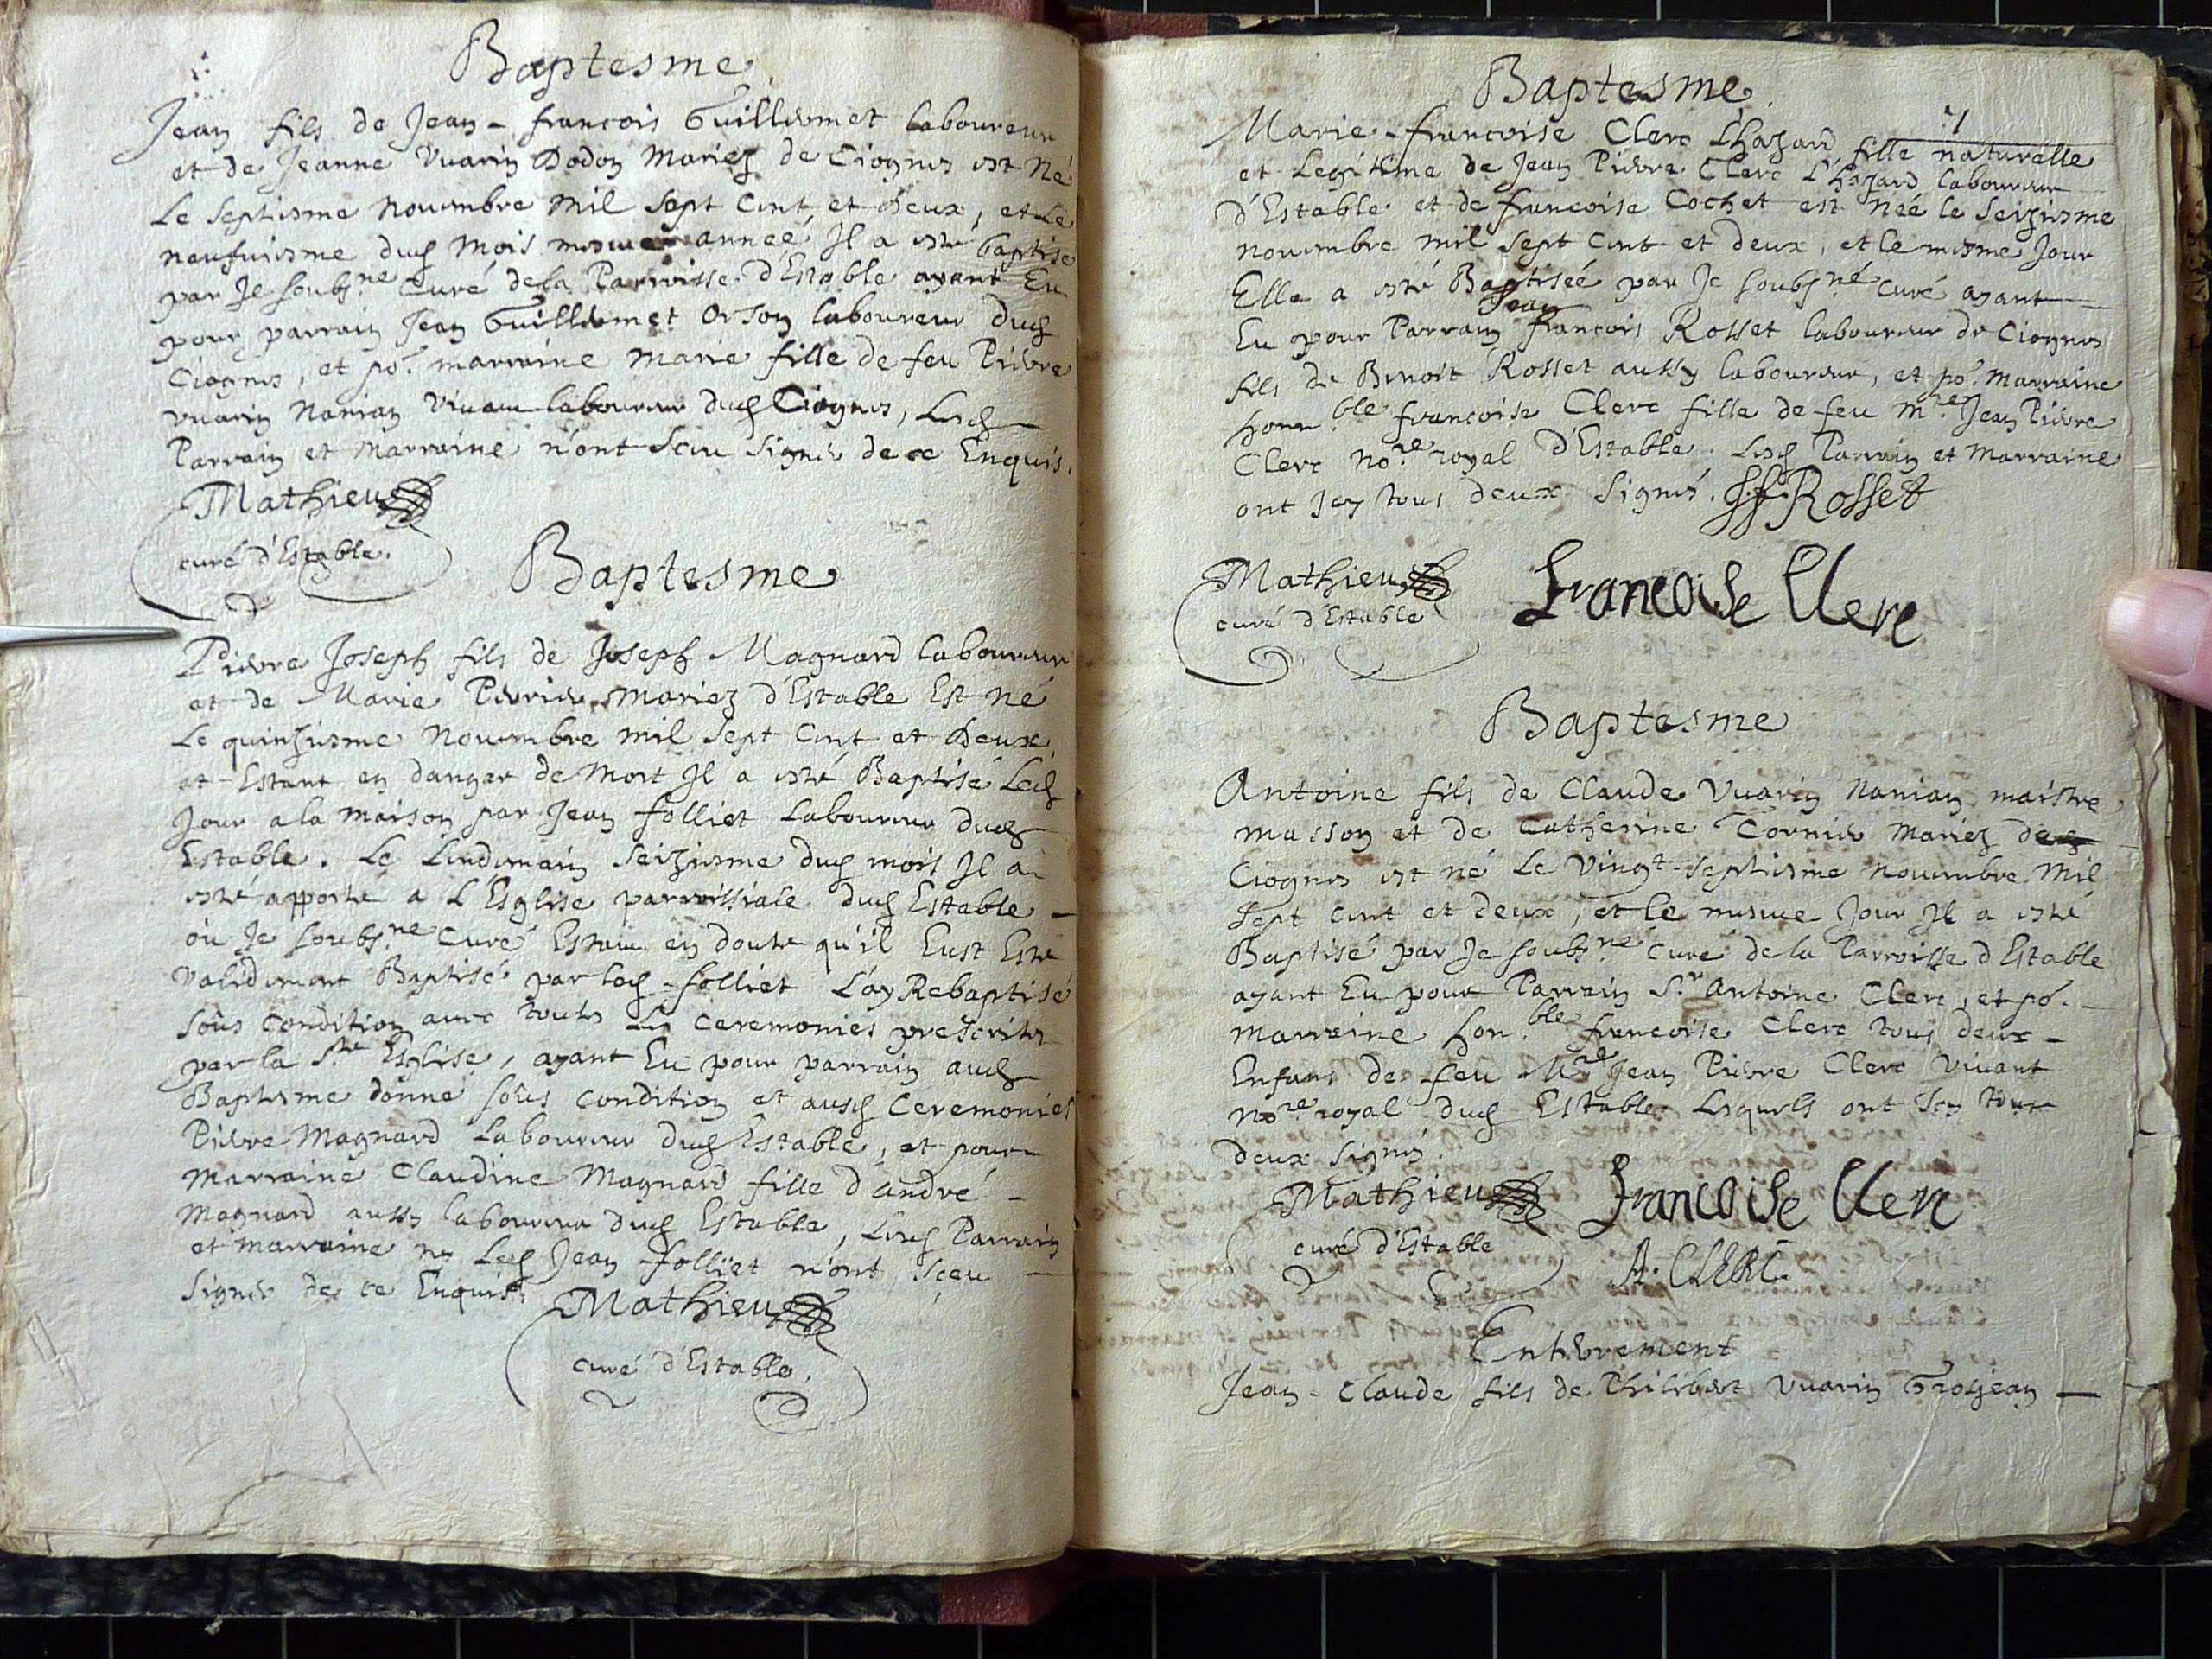 Baptesme
Jean fils de Jean-francois Guilliermet laboureur
et de Jeanne Vuarin Dodon Mariez de Ciognes est Né
le septiesme Nouembre Mil sept cent et deux, et le
neufuiesme dud mois annéé Il a esté baptisé
par Je soubs.né Curé dela Parroisse d'Estable ayant Eu
pour parrain Jean Guilliermet Orson laboureur dud
Ciognes, et po.r marraine marie fille de feu Pierre
vuarin Nanian viuant laboureur dud Ciognes, Lesd
Parrain et Marraine n'ont sceu signer de ce Enquis.
Mathieu
curé d'Estable.
Baptesme
Pierre Joseph fils de Joseph Magnard laboureur
et de Marie Perrier Mariez d'Estable Est Né
Le quinziesme Nouembre mil sept Cent et Deux,
et Estant en danger de Mort Il a esté Baptisé Led
Jour a la maison par Jean folliet Laboureur dud
Estable. Le Lendemain seiziesme dud mois Il a
esté apporté a L'Esglise parroissiale dud Estable
où Je soubs.né Curé Estant en doute qu'il Eust Esté
validement Baptisé par led folliet L'ay Rebaptisé
soûs condition auec toutes Les ceremonies prescrites
par la S.te Esglise, ayant Eu pour parrain aud
Baptesme donné soûs condition et ausd Ceremonies
Pierre Magnard Laboureur dud Estable, et pour
Marraine Claudine Magnard fille d'andré
Magnard aussy laboureur dud Estable, Lesd Parrain
et marraine ny Led Jean folliet n'ont sceu
signer de ce Enquis.
Mathieu
curé d'Estable.
7
Baptesme
Marie-francoise Clerc L'hazard fille naturelle
et Legitime de Jean Pierre Clerc L'hazard laboureur
d'Estable et de francoise Cochet est Néé le seiziesme
nouembre mil sept cent et deux, et le mesme Jour
Elle a esté Baptiséé par Je soubs.né curé ayant
Jean
Eu pour Parrain francois Rosset laboureur de Ciognes
fils de Benoit Rosset aussy laboureur, et po.r Marraine
honn.ble francoise Clerc fille de feu M.re Jean Pierre
Clerc No.re royal d'Estable. Lesd Parrain et Marraine
ont Icy tous deux signés. J.f. Rosset
Mathieu
curé d'Estable
francoise Clerc
Baptesme
Antoine fils de Claude Vuarin Nanian maistre
masson et de Catherine Cornier Mariez de
Ciognes est né Le vingt-septiesme Nouembre Mil
sept cent et deux, et le mesme Jour Il a esté
Baptisé par Je soubs.né Curé de la Parroisse d'Estable
ayant Eu pour Parrain S.r Antoine Clerc, et po.r
marraine hon.ble francoise Clerc tous deux
Enfans de feu M.re Jean Pierre Clerc Viuant
No.re royal dud Estable Lesquels ont Icy tous
deux signés.
Mathieu
curé d'Estable
francoise Clerc
A. CLERC
Enterrement
Jean-Claude fils de Philibert Vuarin Grosjean